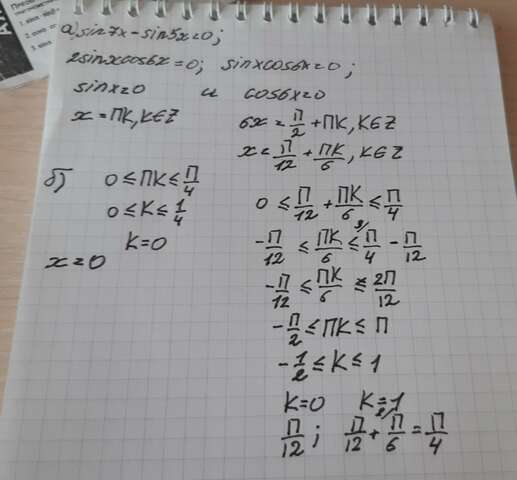 а) sin7x - sin5x = 0;
2sinxcos6x = 0; sinxcos6x = 0;
sinx = 0 и cos6x = 0
x = πk, k∈Z 6x = π/2 + πk, k∈Z
x = π/12 + πk/6, k∈Z
б) 0 ≤ πk ≤ π/4
0 ≤ k ≤ 1/4
k = 0
x = 0
0 ≤ π/12 + πk/6 ≤ π/4
-π/12 ≤ πk/6 ≤ π/4 - π/12
-π/12 ≤ πk/6 ≤ 2π/12
-π/2 ≤ πk ≤ π
-1/2 ≤ k ≤ 1
k = 0 k = 1
π/12; π/12 + π/6 = π/4